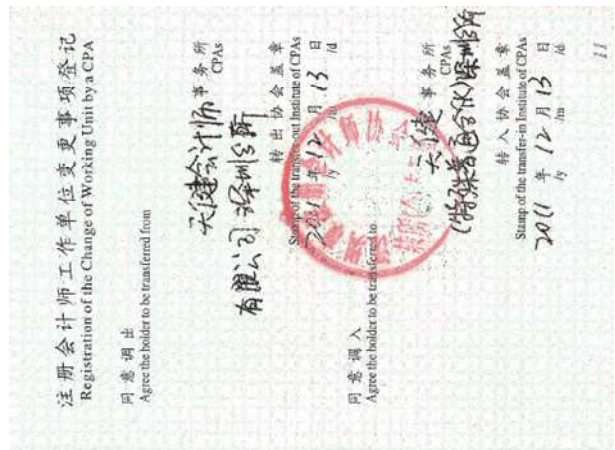 注册会计师工作单位变更事项登记
Registration of the Change of Working Unit by a CPA
同意调出
Agree the holder to be transferred from
天健会计师事务所
CPAs
有限公司深圳分所
转出协会盖章
Stamp of the transfer-out Institute of CPAs
2011 年 12 月 13 日
/y /m /d
同意调入
Agree the holder to be transferred to
天健 事务所
CPAs
(特殊普通合伙)深圳分所
转入协会盖章
Stamp of the transfer-in Institute of CPAs
2011 年 12 月 13 日
/y /m /d
11